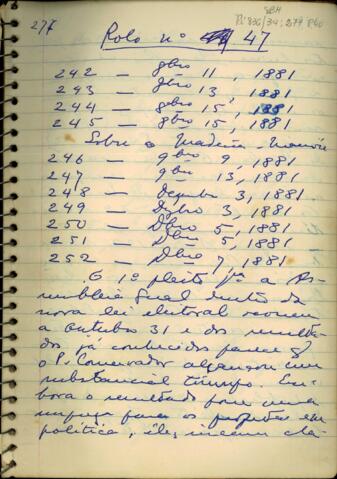 277
Rolo nº 47
242 — 9bro 11, 1881
243 — 9bro 13, 1881
244 — 9bro 15, 1881
245 — 9bro 15, 1881
Sobre o Madeira-Mamoré
246 — 9bro 9, 1881
247 — 9bro 13, 1881
248 — dezembro 3, 1881
249 — Dzbro 3, 1881
250 — Dbro 5, 1881
251 — Dbro 5, 1881
252 — Dbro 7, 1881
O 1º pleito para a As-
sembleia Geral dentro da
nova lei eleitoral ocorreu
a outubro 31 e dos resulta-
dos já conhecidos parece q
o P. Conservador alcançou um
substancial triunfo. Em-
bora o resultado fosse uma
surpresa para os
política, eles